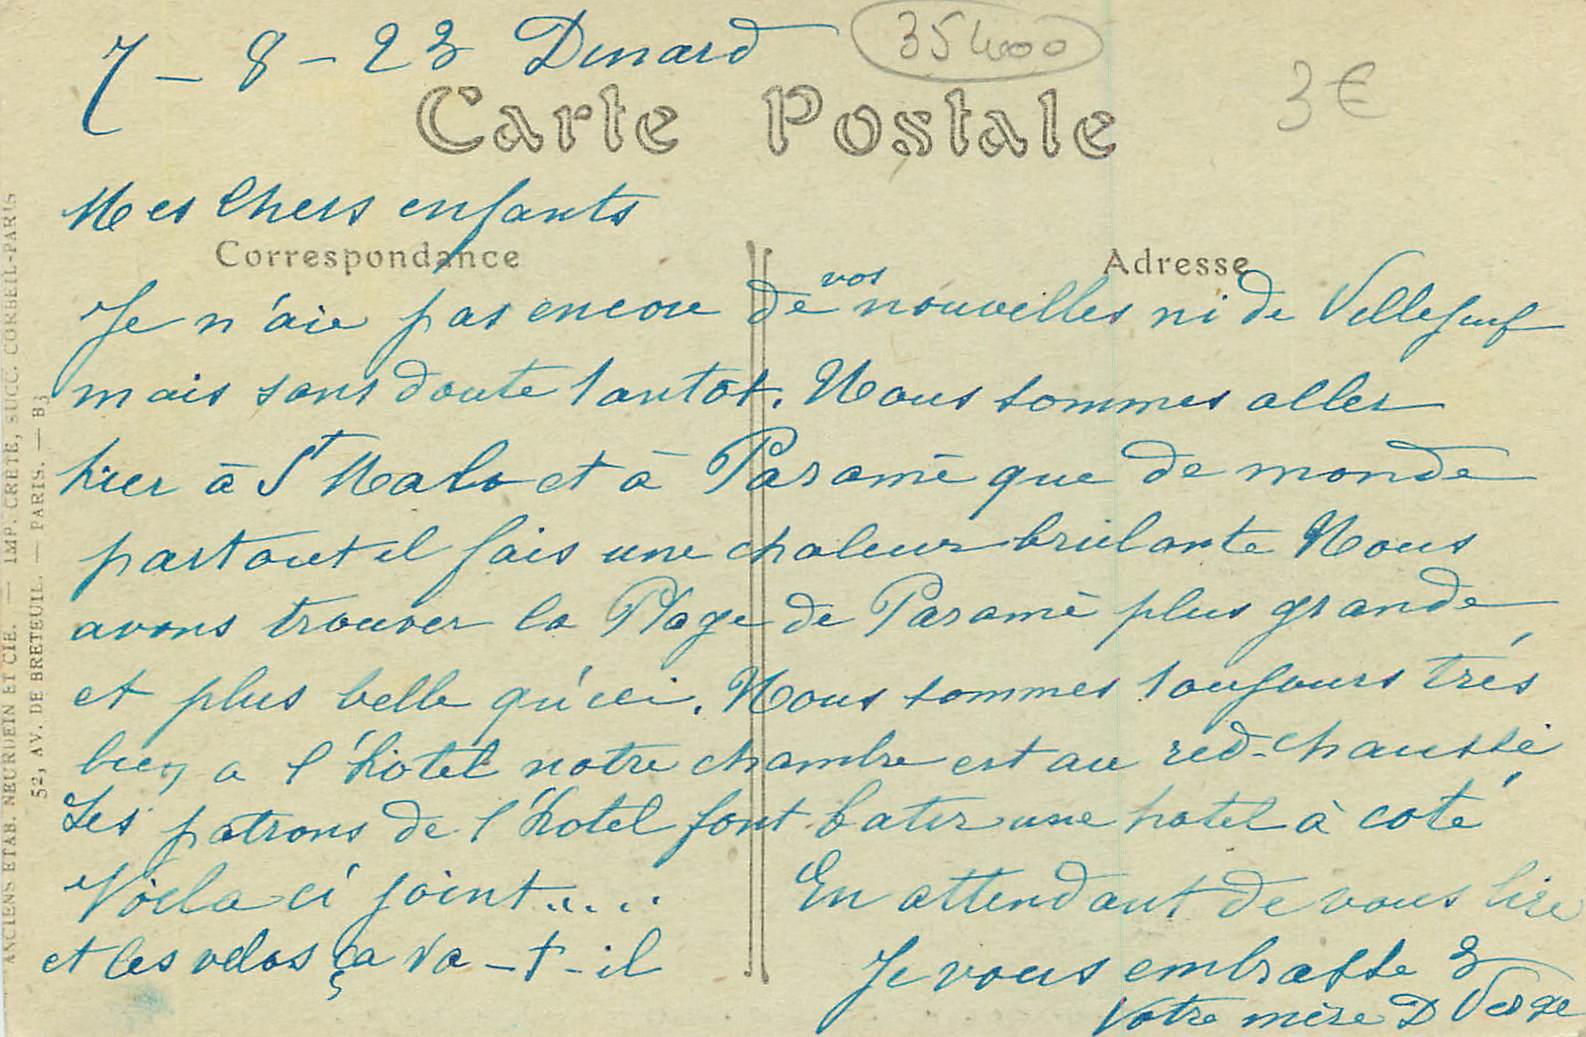 7 - 8 - 23 Dinard
35400
3€
Carte Postale
Mes Chers enfants
Correspondance
Adresse
Je n'aie pas encore de vos nouvelles ni de Villejuif
mais sans doute tantot. Nous sommes aller
hier à St Malo et à Paramè que de monde
partout il fais une chaleur brulante Nous
avons trouver la Plage de Paramè plus grande
et plus belle qu'ici. Nous sommes toujours très
bien a l'hotel notre chambre est au red-chaussé
Les patrons de l'hotel font batir une hotel à coté
Voila ci joint.....
En attendant de vous lire
et les velos ça va-t-il
Je vous embrasse
Votre mère D
ANCIENS ETAB. NEURDEIN ET CIE. — IMP. CRÉTÉ, SUCC. CORBEIL-PARIS
52, AV. DE BRETEUIL. — PARIS. — B3